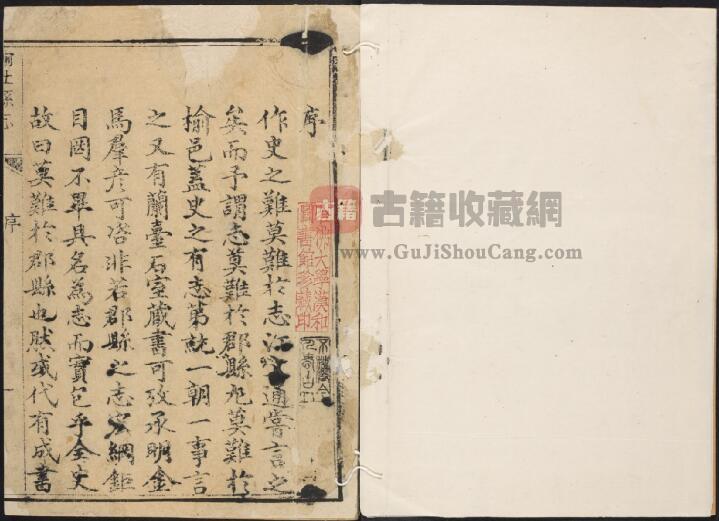 序
作史之難莫難於志江文通嘗言之
矣而予謂志莫難於郡縣尤莫難於
榆邑蓋史之有志第統一朝一事言
之又有蘭臺石室蔵書可攷承明金
馬羣彦可咨非若郡縣之志宏綱鉅
目罔不畢具名為志而實包乎全史
故曰莫難於郡縣也然或代有成書
榆社縣志
序
一
古籍
古籍收藏網
www.GuJiShouCang.com
大學漢和
圖書館珍藏印